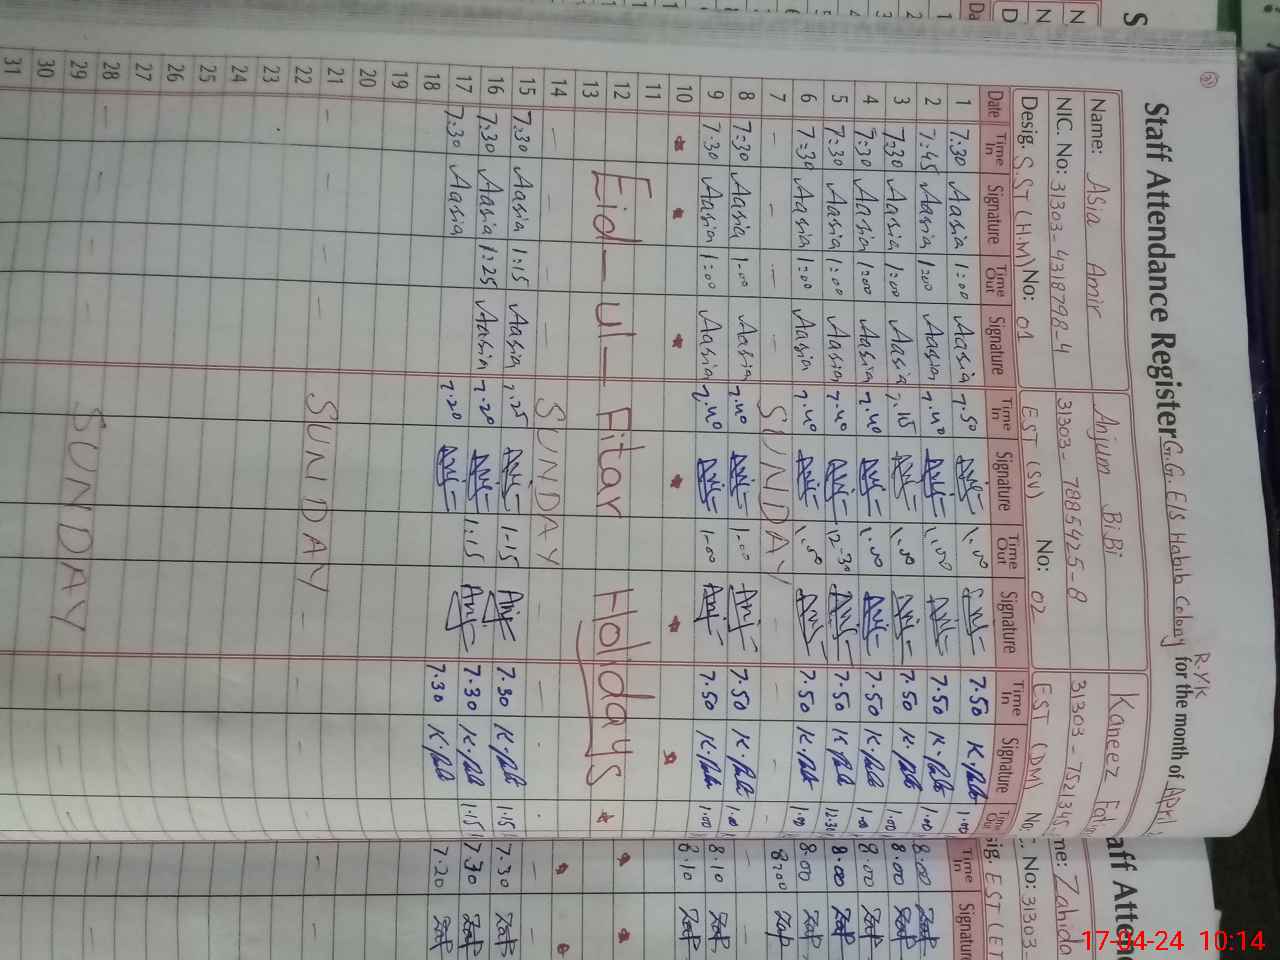 Staff Attendance Register G.G. E/S Habib Colony R.Y/K for the month of April
Name: Asia Amir Anjum BiBi Kaneez
NIC. No: 31303-4318798-4 31303-7885425-8
Desig. S.ST (H.M) No: 01 EST (SV) No: 02 EST (DM) No
Date Time In Signature Time Out Signature Time In Signature Time Out Signature Time In Signature Time Out
1 7:30 Aasia 1:00 Aasia 7.50 1.00 7.50 1.00
2 7:45 Aasia 1:00 Aasia 7.40 1.00 7.50 1.00
3 7:30 Aasia 1:00 Aasia 7.15 1.00 7.50 1.00
4 7:30 Aasia 1:00 Aasia 7.40 1.00 7.50 1.00
5 7:30 Aasia 1:00 Aasia 7.40 12.30 7.50 12.30
6 7:30 Aasia 1:00 Aasia 7.40 1.00 7.50 1.00
7 - - - - SUNDAY - -
8 7:30 Aasia 1:00 Aasia 7.40 1.00 7.50 1.00
9 7:30 Aasia 1:00 Aasia 7.40 1.00 7.50 1.00
10
11
12 Eid-ul-Fitar Holidays
13
14 - - - - SUNDAY - -
15 7:30 Aasia 1:15 Aasia 7.25 1.15 7.30 1.15
16 7:30 Aasia 1:25 Aasia 7.20 1:15 7.30 1.15
17 7:30 Aasia 7.20 7.30
18
19
20
21 - - - - SUNDAY - -
22
23
24
25
26
27
28 - - - - SUNDAY - -
29
30
31
aff Atten
me: Zahida
No: 31303-
sig. EST (ET
Time In Signature
8.00
8.00
8.00
8.00
8.00
8:00
8.10
8.10
7.30
7.30
7.20
17-04-24 10:14